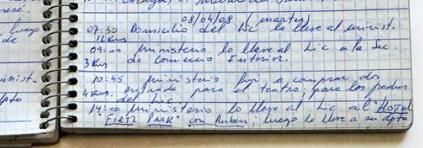 08/04/08 (martes)
07:30 Domicilio del Lic lo lleve al minist.
12 Kms
09:00 ministerio lo lleve al Lic a la Sec.
3 Kms de Comercio Interior.
10:45 ministerio fui a comprar dos
4 Kms. entrada para el teatro, para los padres
del Lic.
14:00 ministerio lo lleve al Lic al "HOTEL
FIRST PARK" con Ruben; luego lo lleve a su dpto
luego
de
minist.
dpto